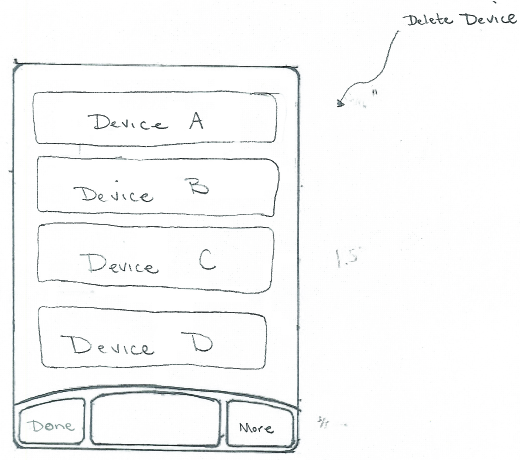 Delete Device
Device A
Device B
Device C
1.5"
Device D
Done
More